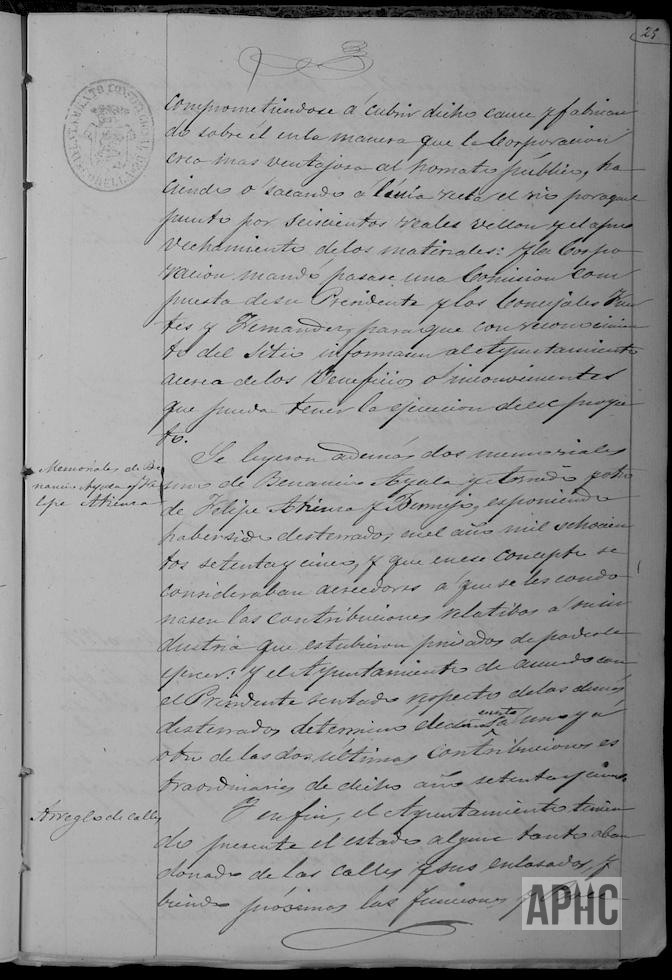 25
comprometiendose á cubrir dicho cauce y fabrican
do sobre él en la manera que la Corporacion
crea mas ventajosa al hornato público, ha
ciendo ó sacando a linia recta el rio por aquel
punto por seiscientos reales vellon y el apro
vechamiento de los materiales: y la Corpo
racion mandó pasase una Comision com
puesta de su Presidente y los Concejales Fuen
tes y Fernandez, para que con reconocimien
to del sitio informasen al Ayuntamiento
acerca de los beneficios ó inconvenientes
que pueda tener la ejecucion de ese proyec
to.
Memoriales de Be
nancio Ayala y Fe
lipe Atienza
Se leyeron además dos memoriales
uno de Benancio Ayala y otro
de Felipe Atienza y Bermejo, esponiendo
haber sido desterrados en el año mil ochocien
tos setenta y cinco, y que en ese concepto se
consideraban acreedores á que se les condo
nasen las contribuciones relatibas á su in
dustria que estubieron privados de poder
ejercer: y el Ayuntamiento de acuerdo con
el Presidente sentado respecto de los demas
desterrados determinó á uno y á
otro de las dos últimas contribuciones es
traordinarias de dicho año setenta y cinco.
Arreglo de calles
Y en fin, el Ayuntamiento tenien
do presente el estado algun tanto aban
donado de las calles y sus enlosados, y
biendo prócsimas las funciones y
APHC